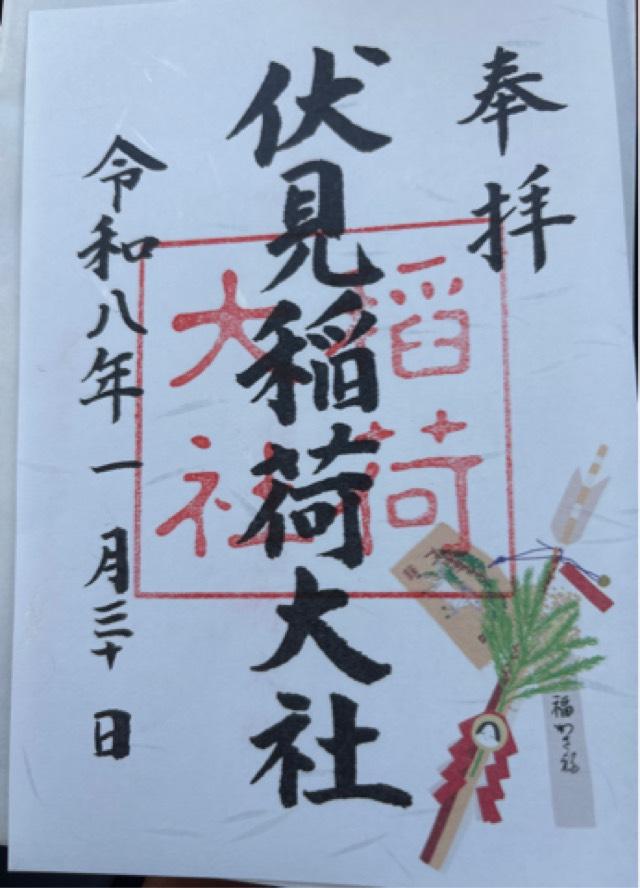 奉拝
伏見稲荷大社
稲荷
大社
令和八年一月三十日